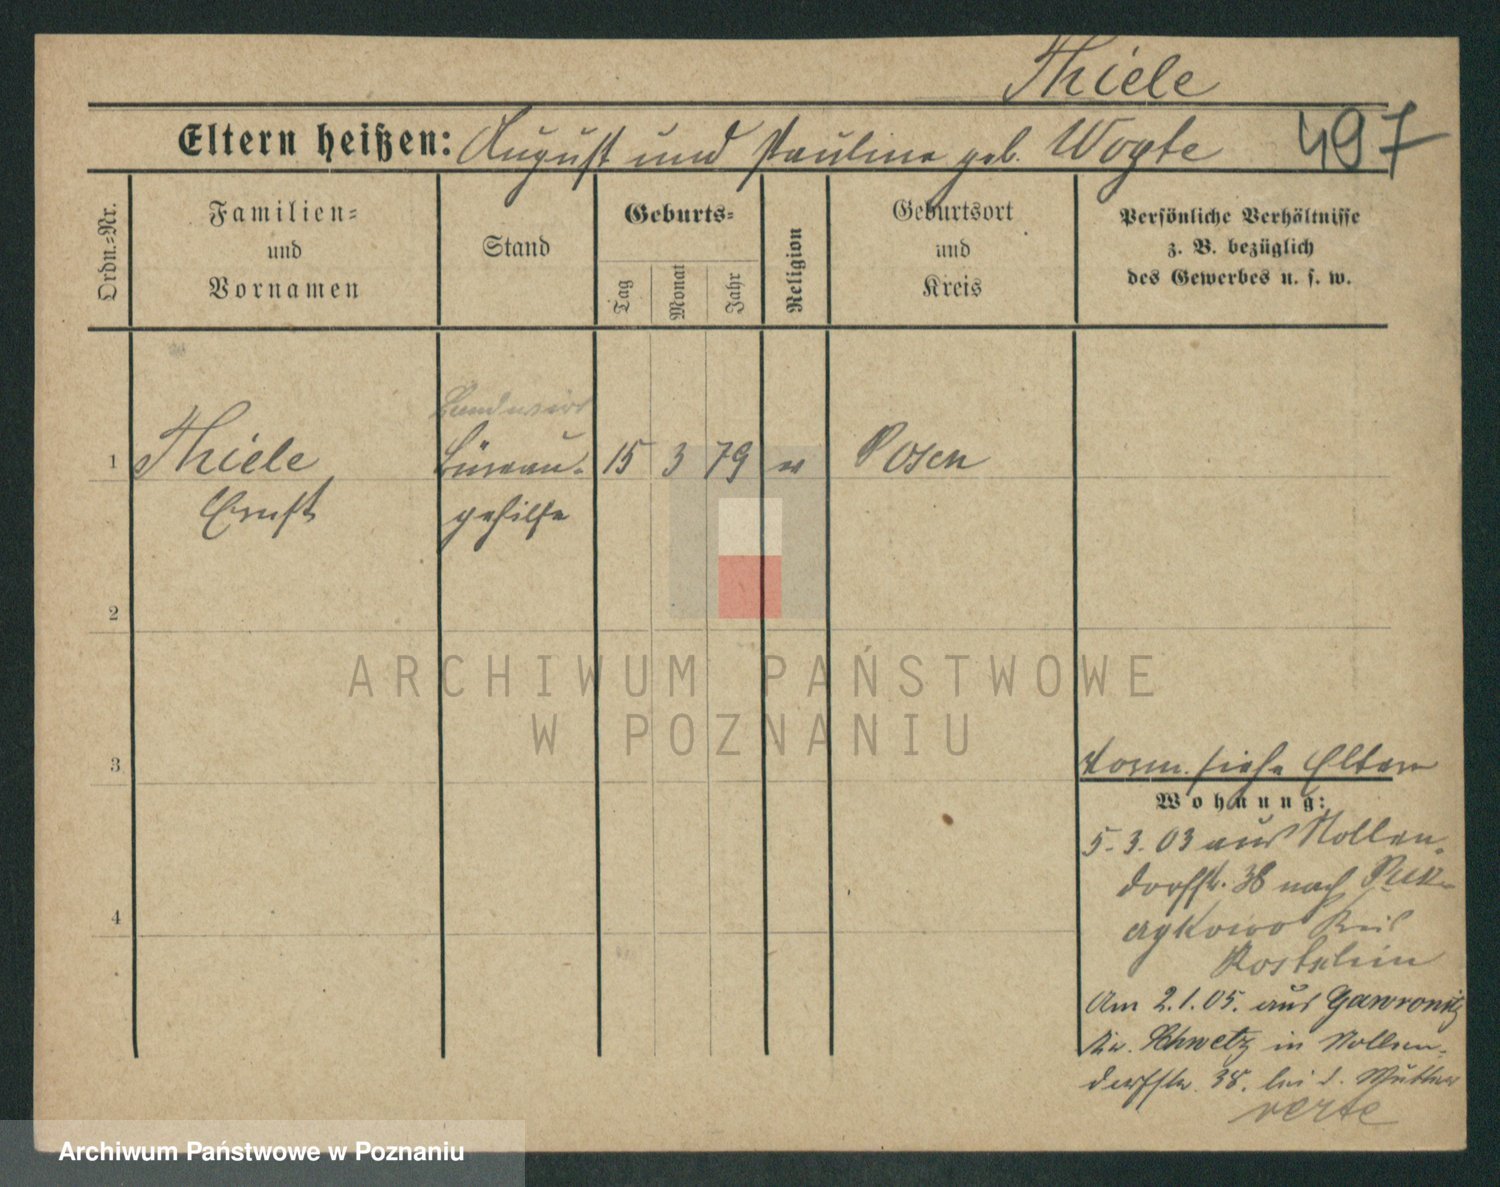 Thiele
Eltern heißen: August und Pauline geb. Wogte 497
Ordn.-Nr.
Familien-
und
Vornamen
Stand
Geburts-
Tag
Monat
Jahr
Religion
Geburtsort
und
Kreis
Persönliche Verhältnisse
z. B. bezüglich
des Gewerbes u. s. w.
Landwirt
1 Thiele Büreau- 15 3 79 Posen
Ernst gehilfe
2
ARCHIWUM PAŃSTWOWE
W POZNANIU
3
Vorm. siehe Eltern
Wohnung:
5.3.03 aus Nollen-
dorfstr. 38 nach
Kreis
4
Am 2.1.05. aus Gawronitz
Kr. Schwetz in Nollen-
dorfstr. 38. bei d. Mutter
verte
Archiwum Państwowe w Poznaniu